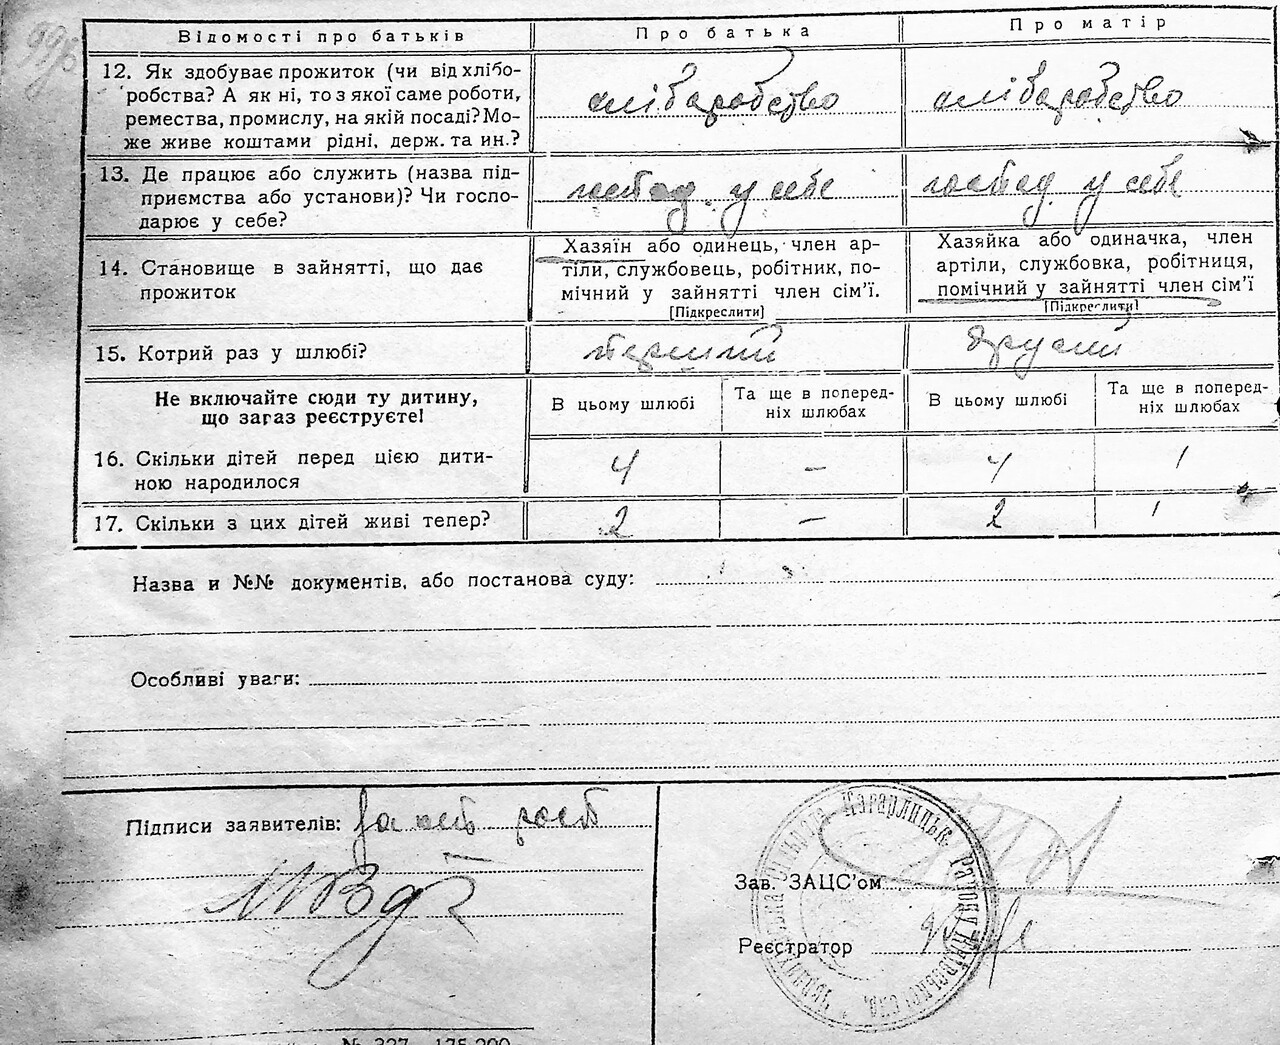 Відомості про батьків
Про батька
Про матір
12. Як здобуває прожиток (чи від хлібо-
робства? А як ні, то з якої саме роботи,
ремества, промислу, на якій посаді? Мо-
же живе коштами рідні, держ. та ин.?
хліборобство
хліборобство
13. Де працює або служить (назва під-
приємства або установи)? Чи госпо-
дарює у себе?
господ. у себе
господ. у себе
14. Становище в зайнятті, що дає
прожиток
Хазяїн або одинець, член ар-
тіли, службовець, робітник, по-
мічний у зайнятті член сім'ї.
[Підкреслити]
Хазяйка або одиначка, член
артіли, службовка, робітниця,
помічний у зайнятті член сім'ї
[Підкреслити]
15. Котрий раз у шлюбі?
перший
другий
Не включайте сюди ту дитину,
що зараз реєструєте!
В цьому шлюбі
Та ще в поперед-
ніх шлюбах
В цьому шлюбі
Та ще в поперед-
ніх шлюбах
16. Скільки дітей перед цією дити-
ною народилося
4
–
4
1
17. Скільки з цих дітей живі тепер?
2
–
2
1
Назва и №№ документів, або постанова суду:
Особливі уваги:
Підписи заявителів:
Зав. ЗАЦС'ом
Реєстратор
Кагарлицьк. Району Київської
№ 327 – 175.200